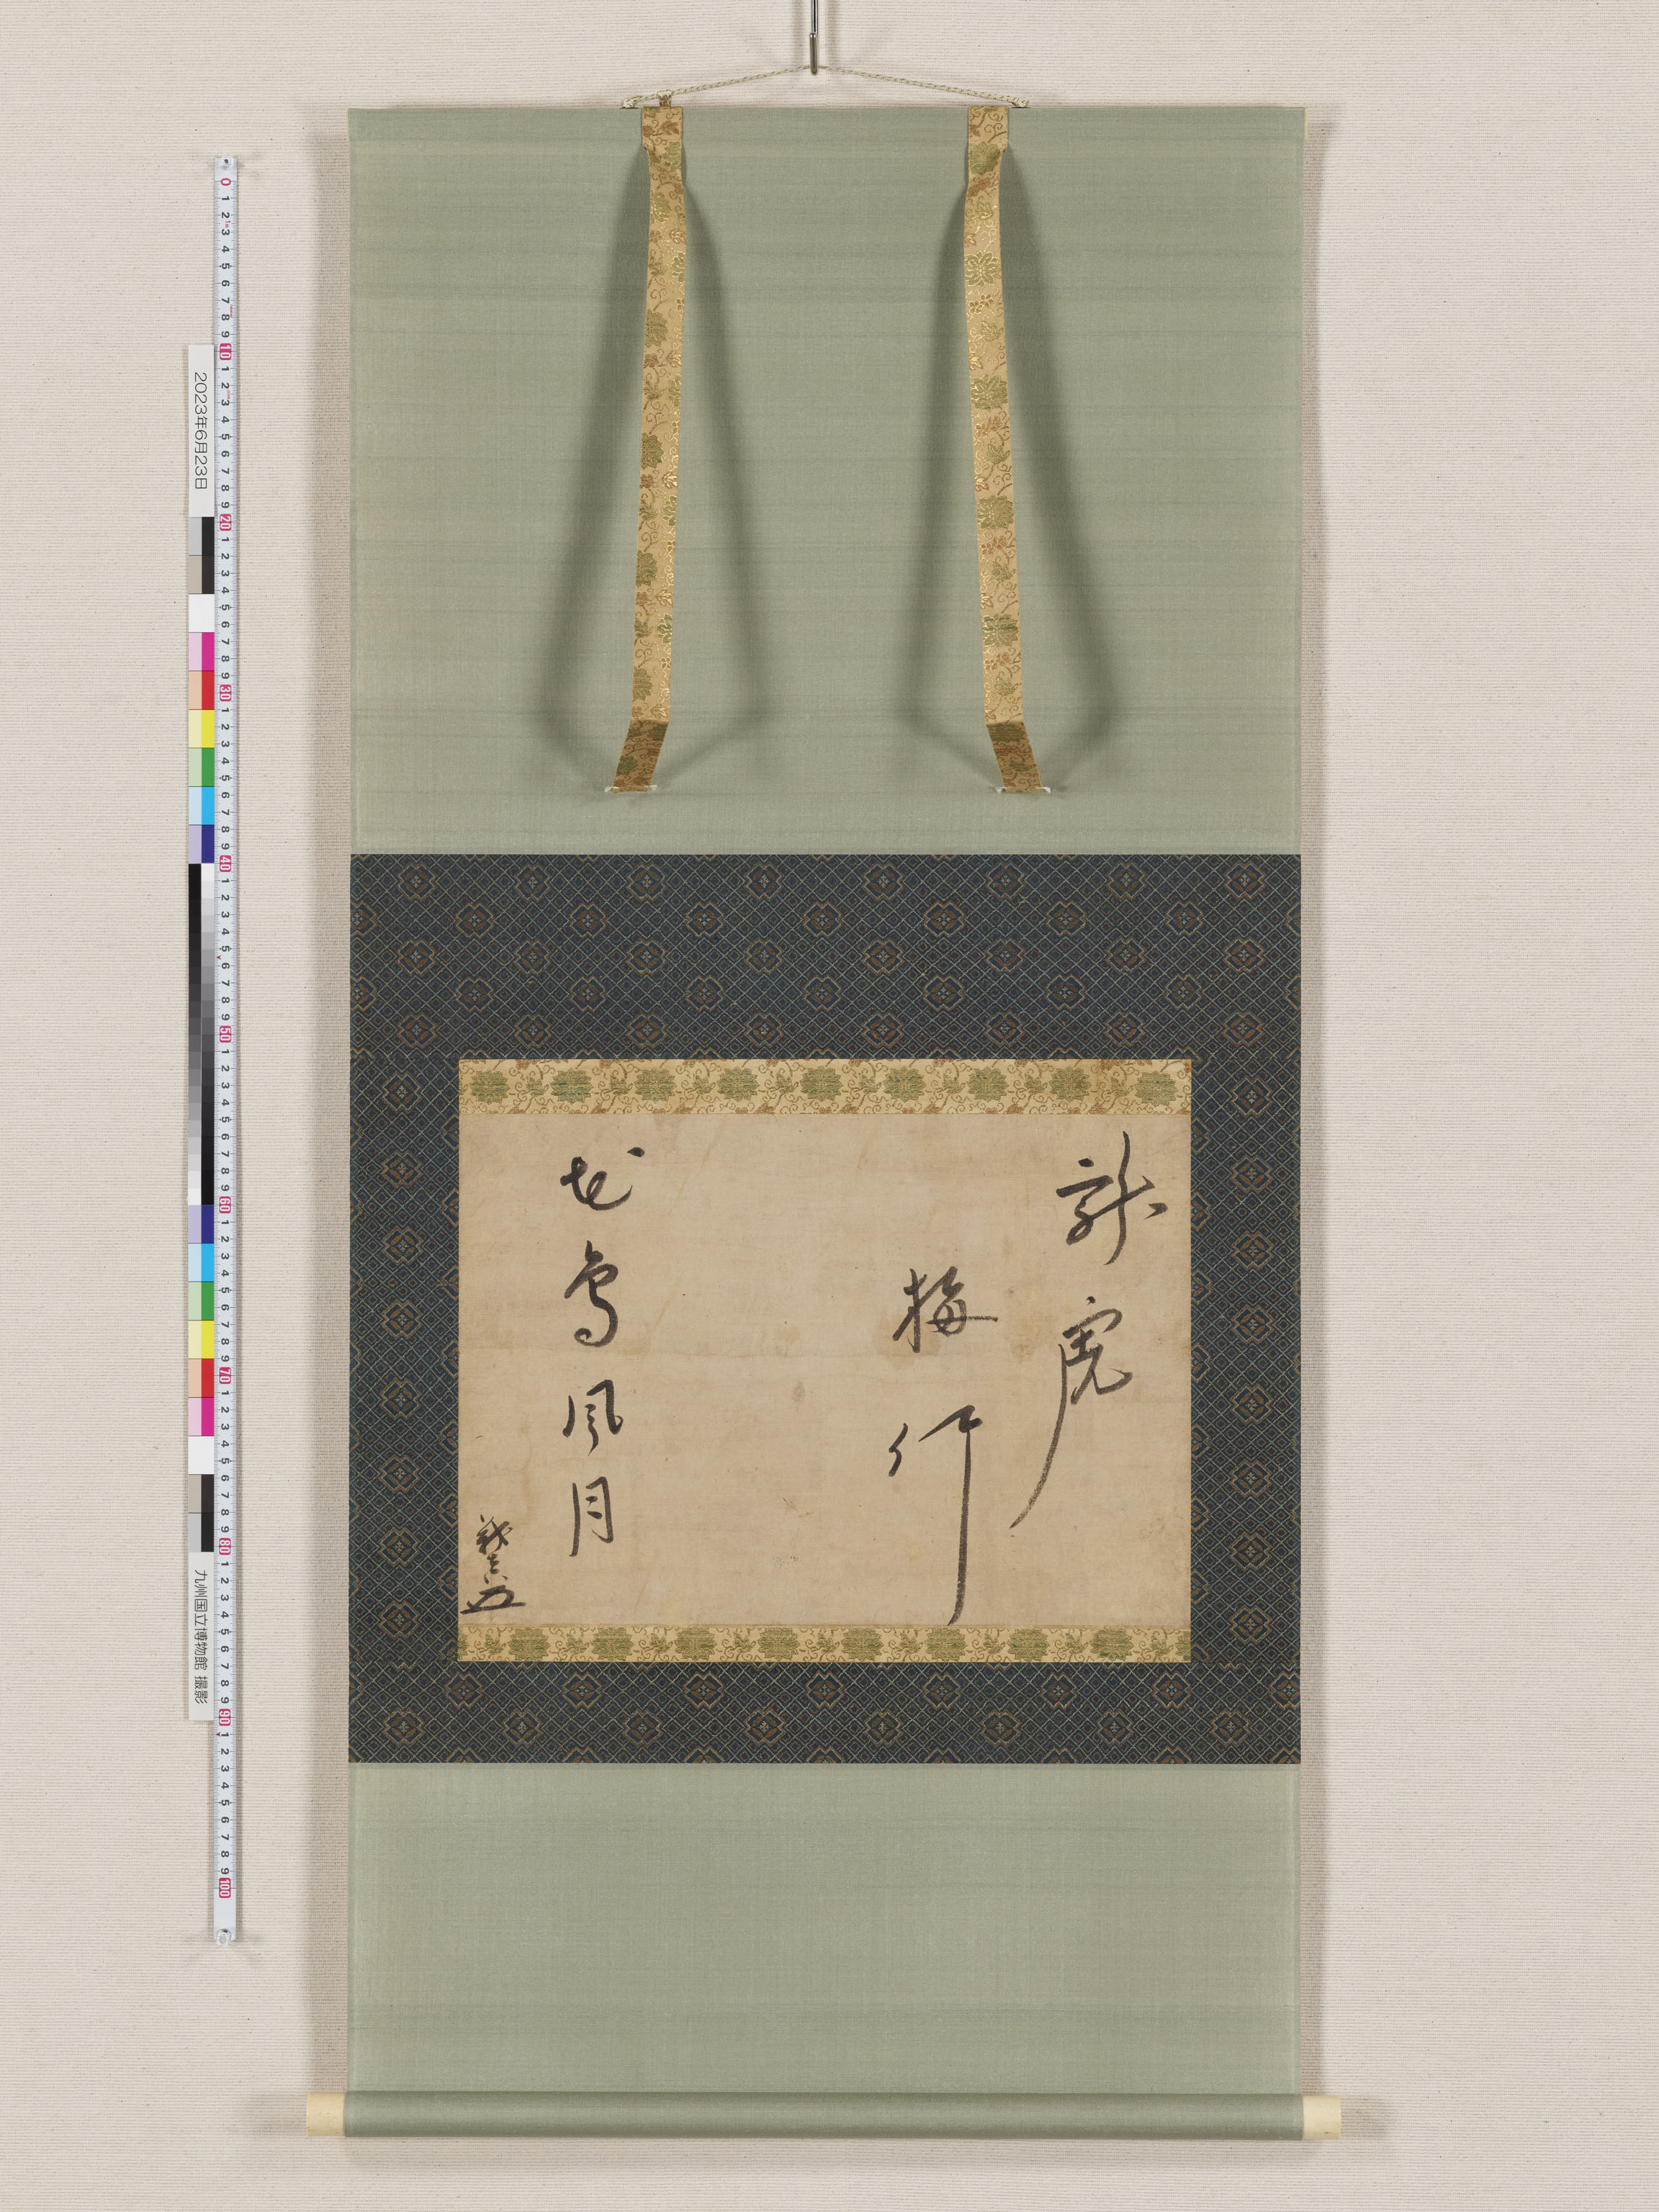 龍虎
梅竹
花鳥風月
2023年6月23日
九州国立博物館 撮影